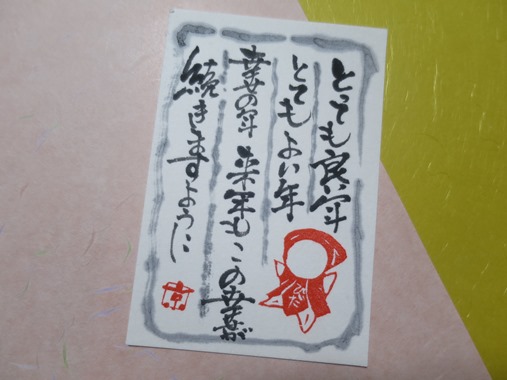 とっても良い年
とてもよい年
幸せの年 来年もこの幸せが
続きますように
ひだ
京